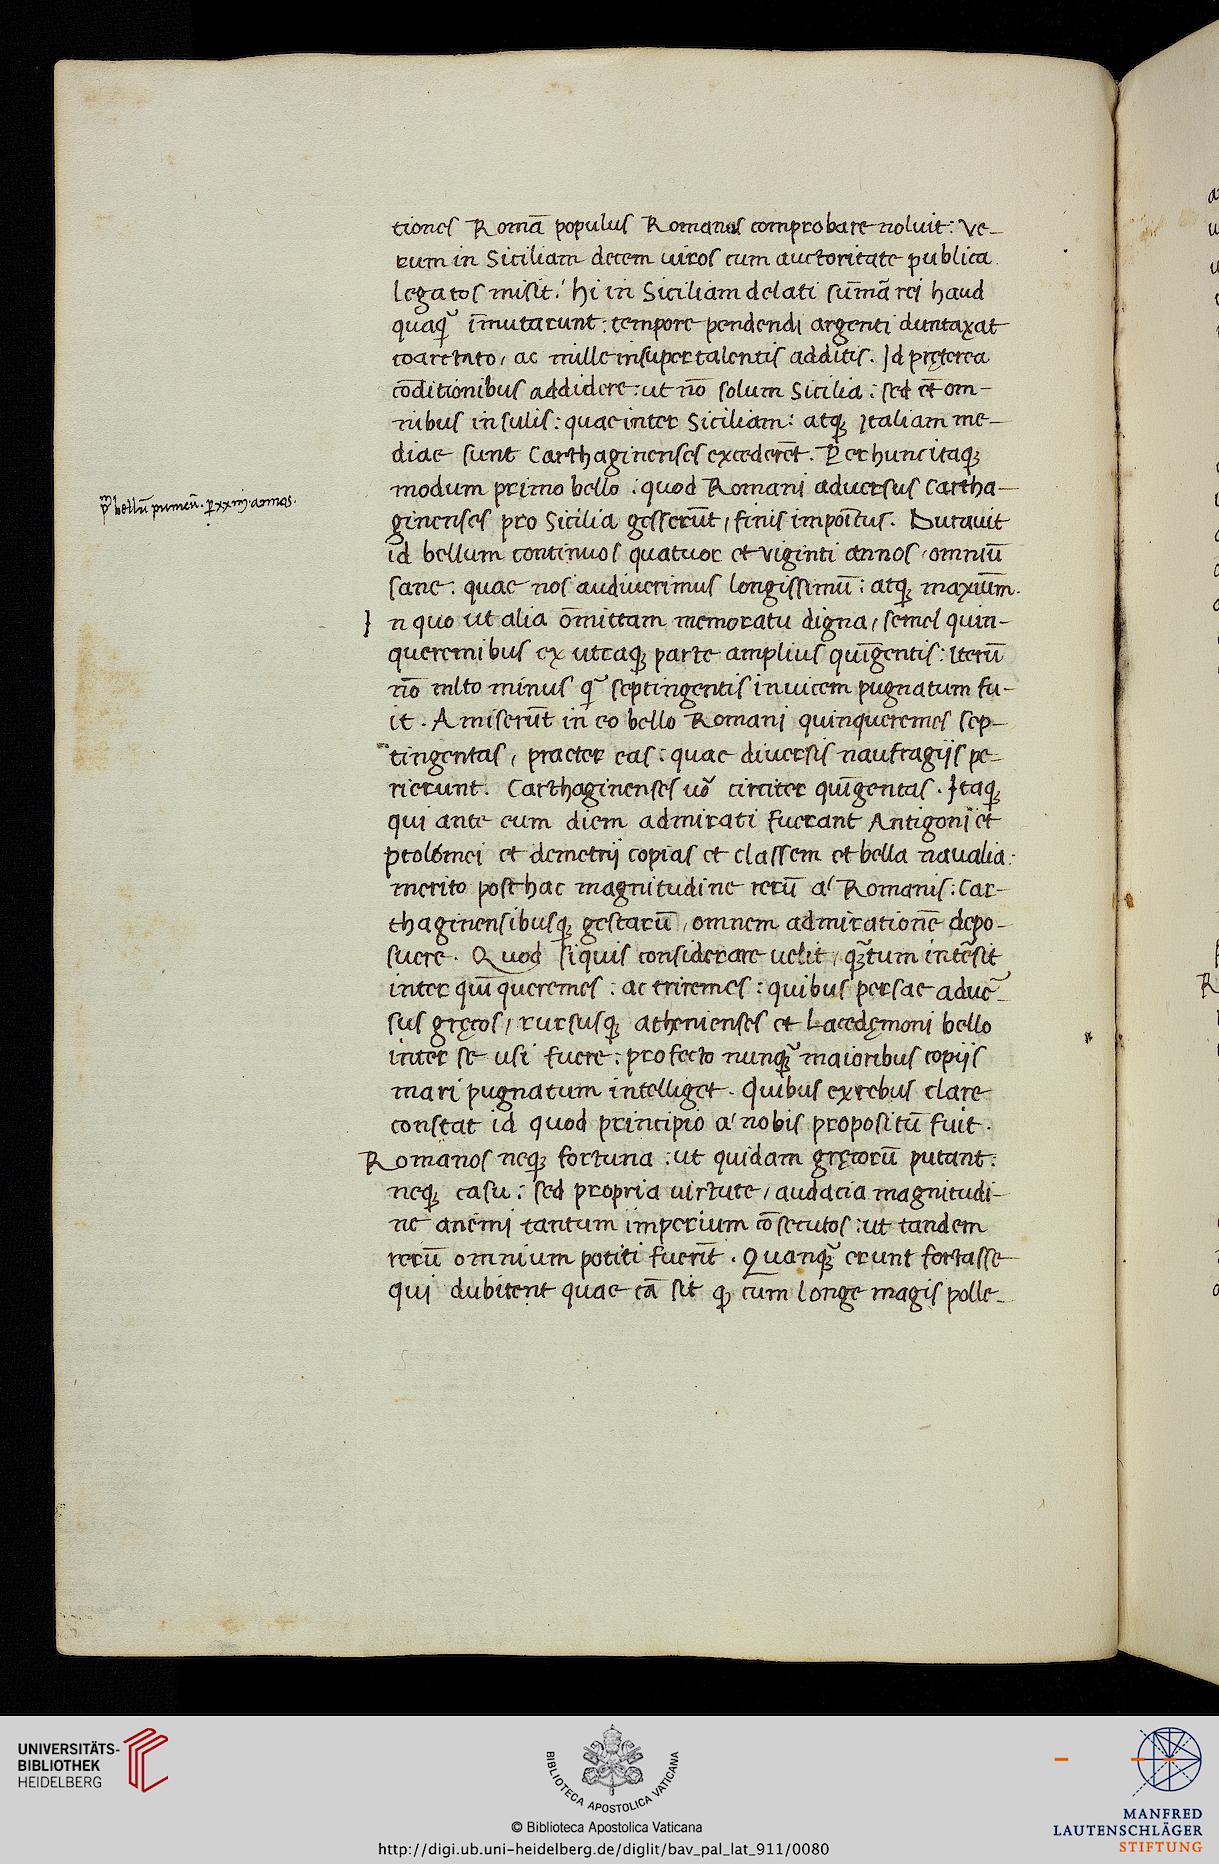 tiones Romā populus Romanus comprobare noluit: Ve-
rum in Siciliam decem uiros cum auctoritate publica
legatos misit: hi in Siciliam delati sūmā rei haud
quaq̄ īmutarunt: tempore pendendi argenti duntaxat
coarctato, ac mille insuper talentis additis. Id pręterea
cōditionibus addidere: ut nō solum Sicilia: sed et̄ om-
nibus insulis: quae inter Siciliam: atq; Italiam me-
diae sunt Carthaginenses excederēt. Per hunc itaq;
modum primo bello: quod Romani aduersus Cartha-
p̄m bellū punicū. per xxiiij. annos.
ginenses pro Sicilia gesserūt, finis impoītus. Durauit
id bellum continuos quatuor et viginti annos, omniū
sane: quae nos audiuerimus longissimū: atq; maxium̄.
In quo ut alia ōmittam memoratu digna, semel quin-
queremibus ex utraq; parte amplius quīgentis: iterū
nō mlto minus q̄ septingentis inuicem pugnatum fu-
it. Amiserūt in eo bello Romani quinqueremes sep-
tingentas, praeter eas: quae diuersis naufragijs pe-
rierunt. Carthaginenses uō circiter quīgentas. Itaq;
qui ante eum diem admirati fuerant Antigoni et
ptolomei et demetrij copias et classem et bella naualia:
merito posthac magnitudine rerū a' Romanis: Car-
thaginensibusq; gestarū, omnem admirationē depo-
suere. Quod siquis considerare uelit, q̄tum intersit
inter quīqueremes: ac triremes: quibus persae aduer-
sus gręcos, rursusq; athenienses et Lacedęmoni bello
inter se usi fuere: profecto nunq̄ maioribus copijs
mari pugnatum intelliget. Quibus ex rebus clare
constat id quod principio a' nobis propositū fuit.
Romanos neq; fortuna: ut quidam gręcorū putant:
neq; casu: sed propria uirtute, audacia magnitudi-
ne animi tantum imperium cōsecutos: ut tandem
rerū omnium potiti fuerīt. Quanq̄ erunt fortasse
qui dubitent quae cā sit q; cum longe magis polle-
UNIVERSITÄTS-
BIBLIOTHEK
HEIDELBERG
BIBLIOTECA APOSTOLICA VATICANA
© Biblioteca Apostolica Vaticana
http://digi.ub.uni-heidelberg.de/diglit/bav_pal_lat_911/0080
MANFRED
LAUTENSCHLÄGER
STIFTUNG